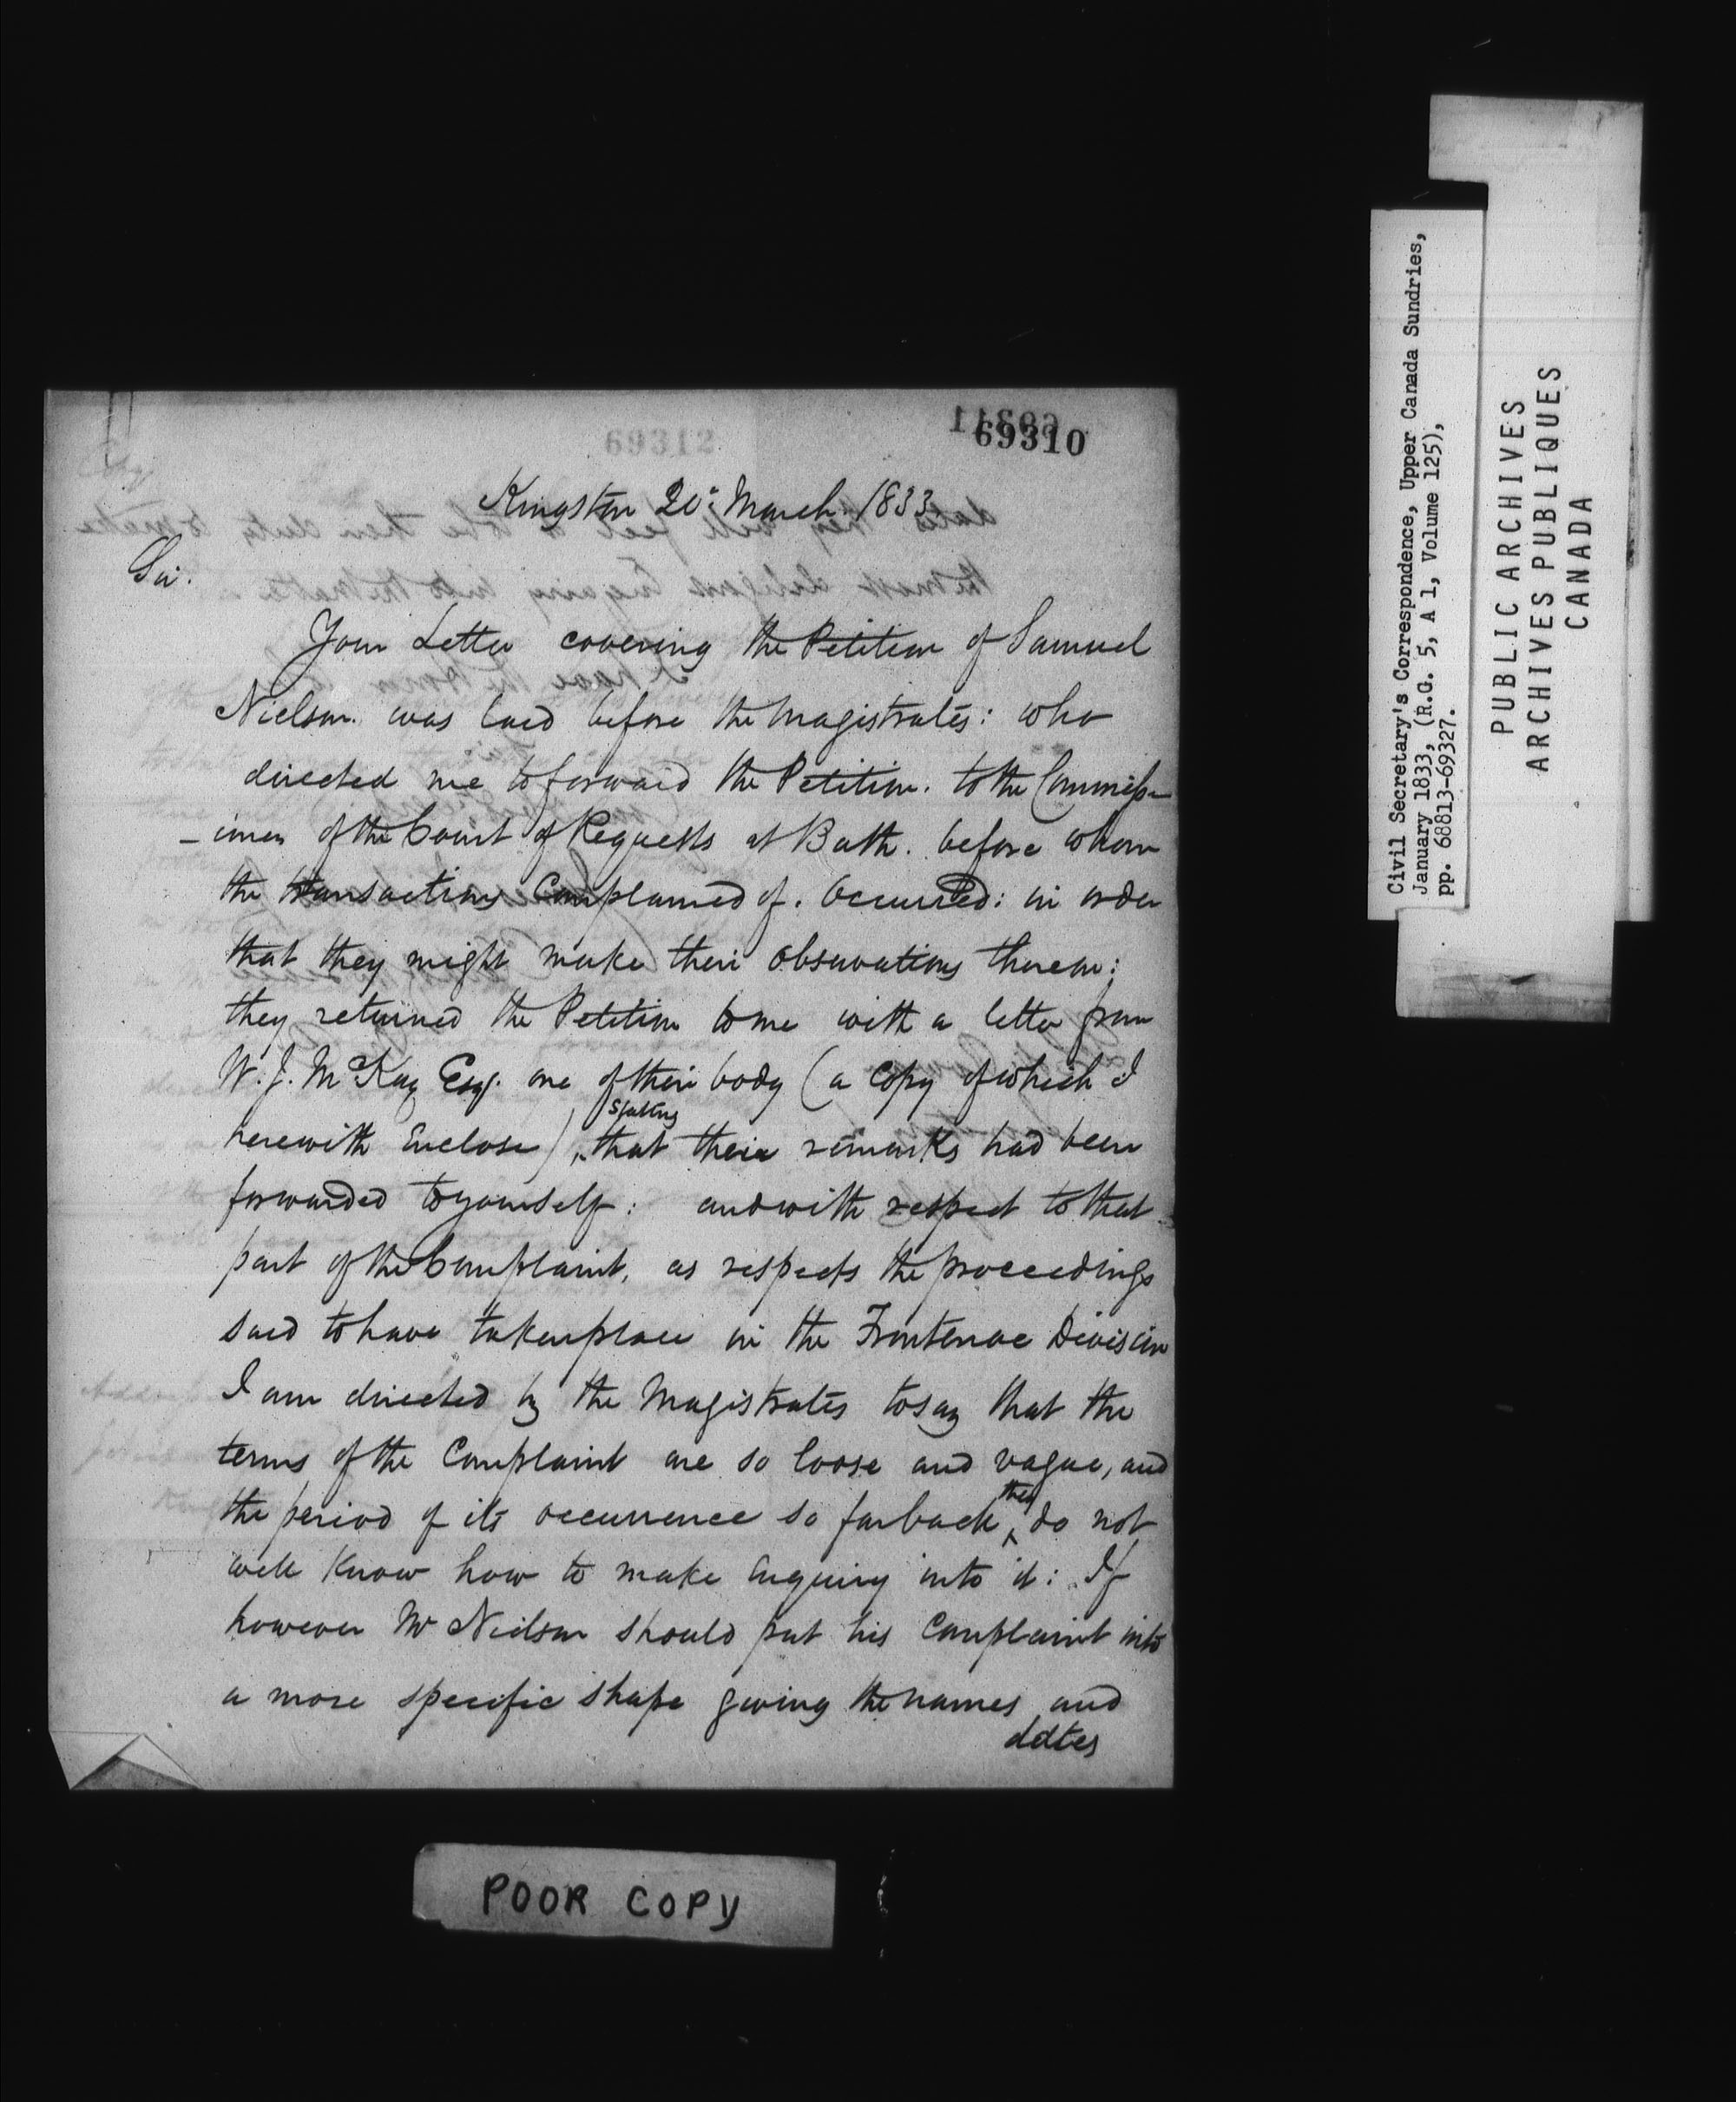 69312
69310
Kingston 20th March 1833
Sir.
Your Letter covering the Petition of Samuel
Nielson. was laid before the Magistrates: who
directed me to forward the Petition. to the Commiss-
-ioners of the Court of Requests at Bath. before whom
the transactions Complained of. occurred: in order
that they might make their observations thereon:
they returned the Petition to me with a letter from
W. J. McKay Esq. one of their body (a Copy of which I
herewith Enclose), stating that their remarks had been
forwarded to yourself: and with respect to that
part of the Complaint, as respects the proceedings
said to have taken place in the Frontenac Division
I am directed by the Magistrates to say that the
terms of the Complaint are so loose and vague, and
the period of its occurrence so far back they do not
well Know how to make Enquiry into it: If
however Mr Neilson should put his Complaint into
a more specific shape giving the names and
dates
POOR COPY
Civil Secretary's Correspondence, Upper Canada Sundries,
January 1833, (R.G. 5, A 1, Volume 125),
pp. 68813-69327.
PUBLIC ARCHIVES
ARCHIVES PUBLIQUES
CANADA